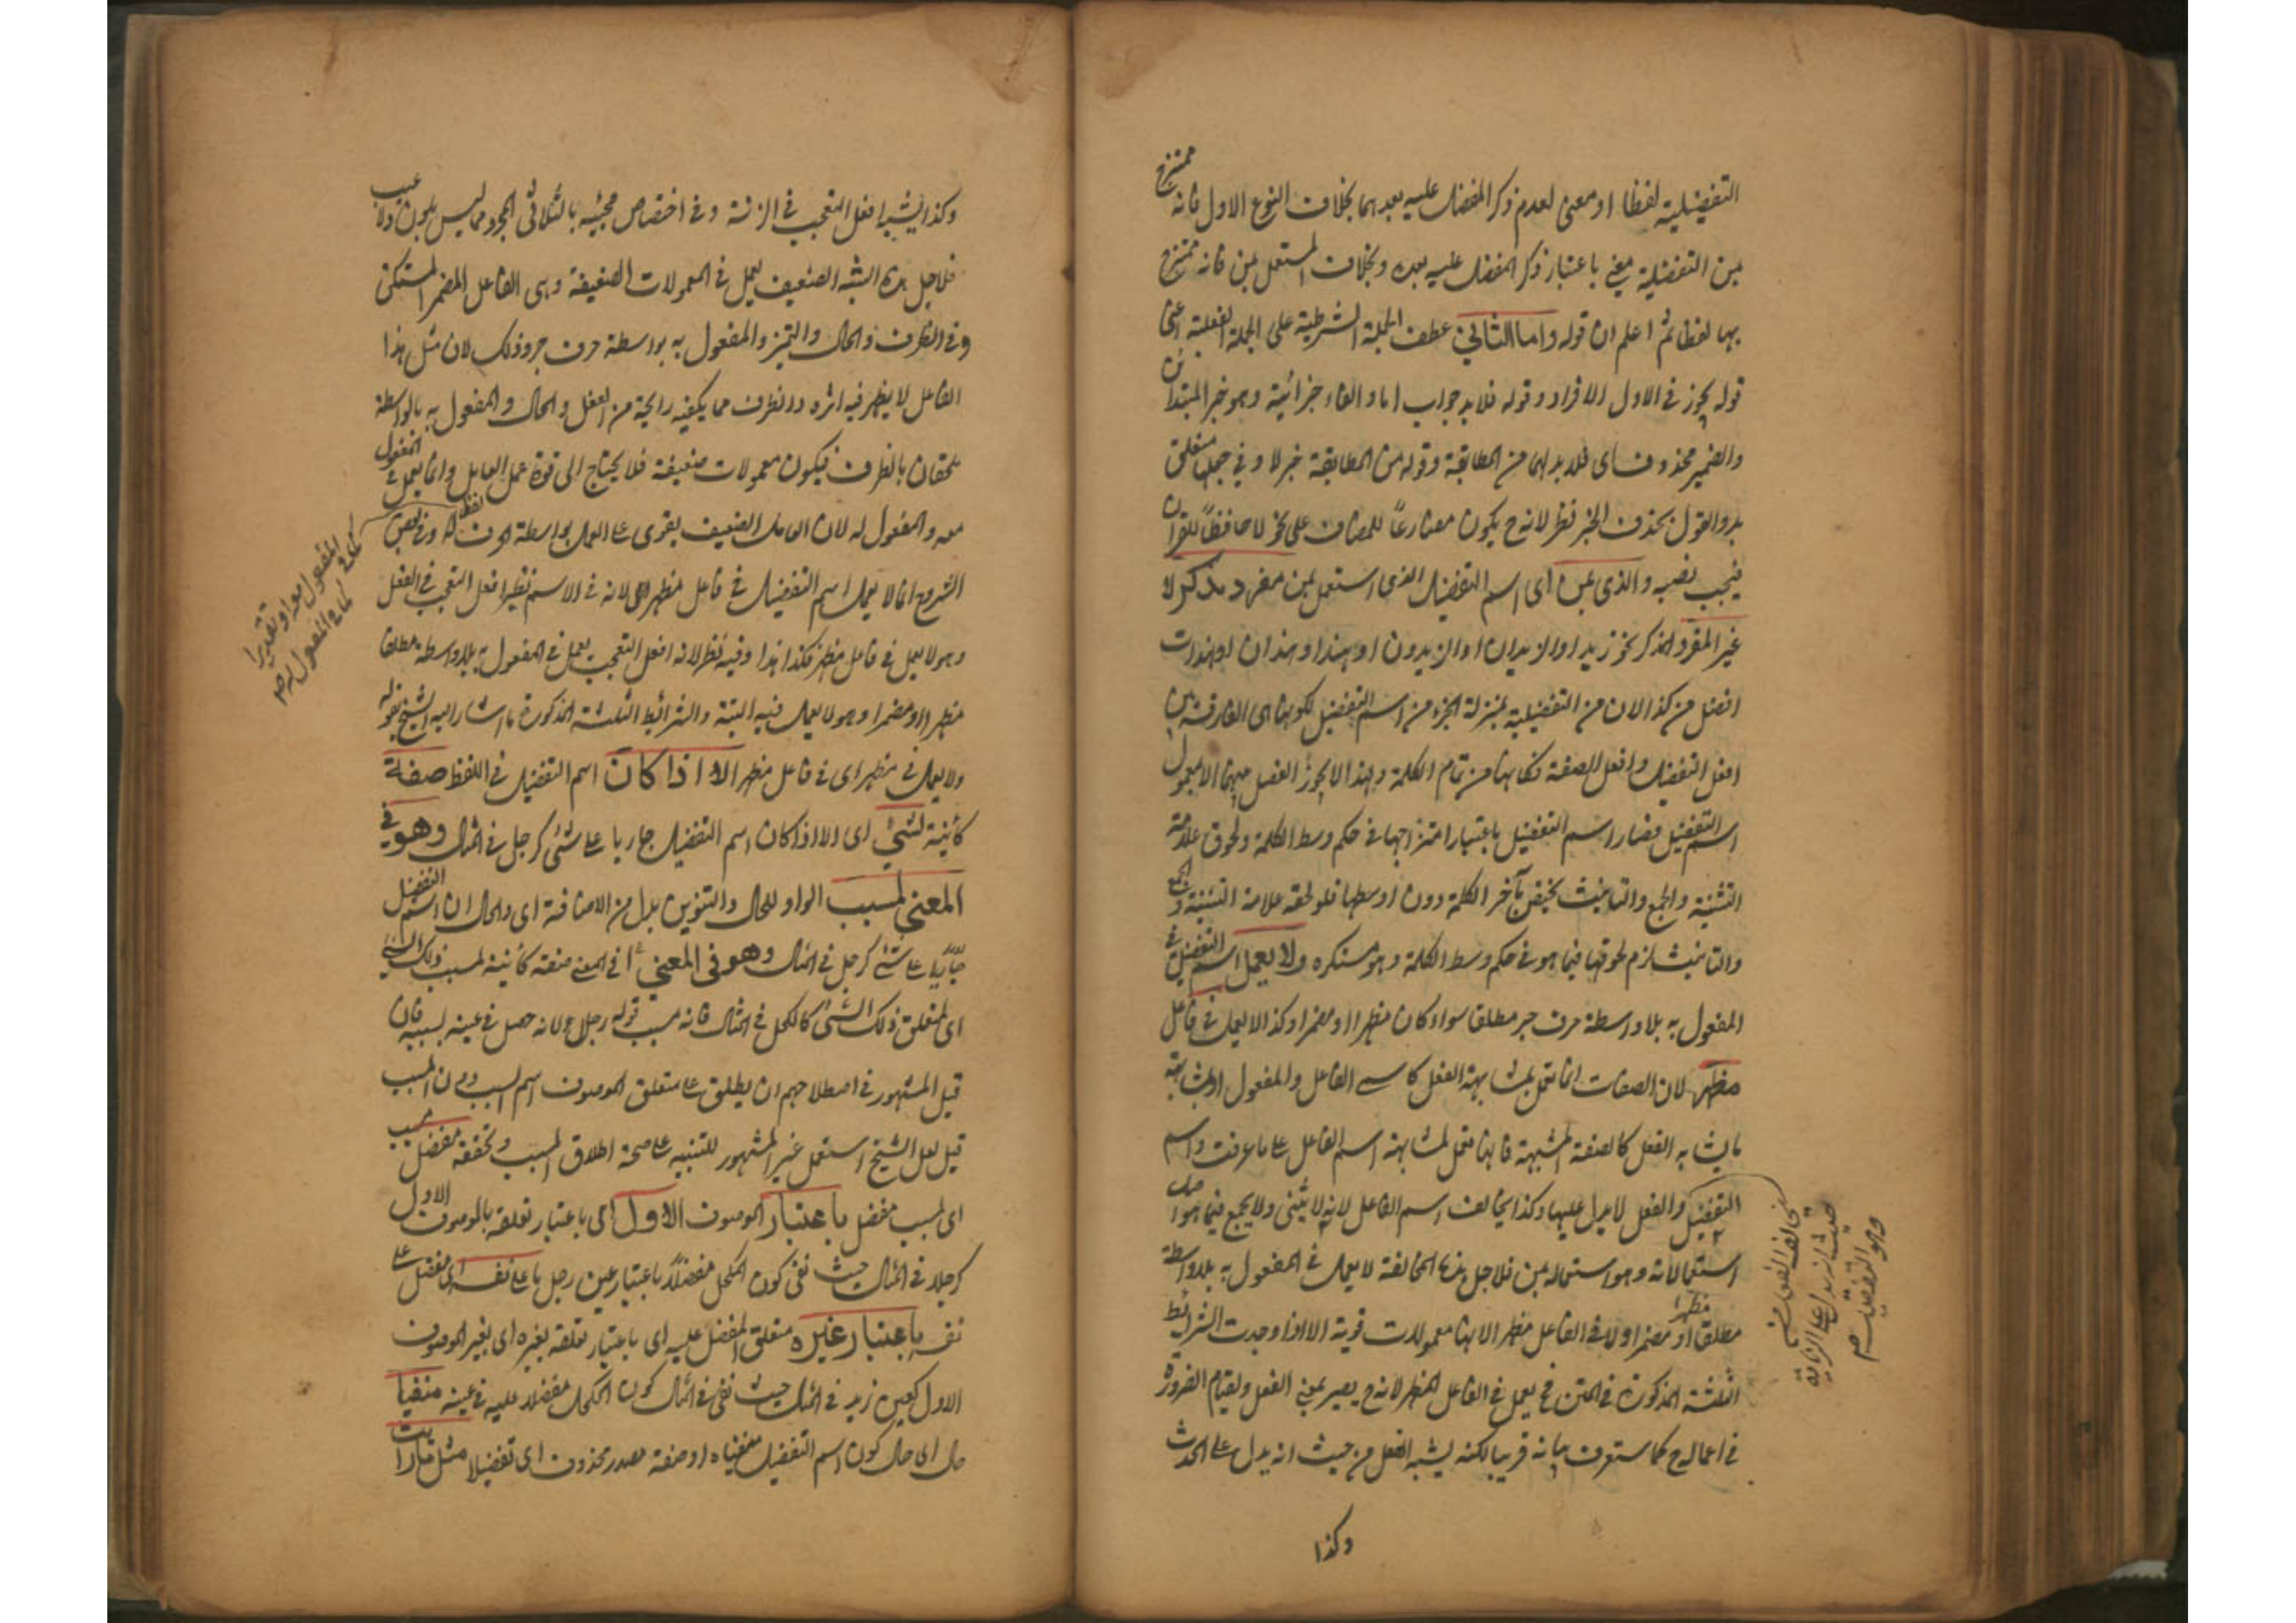 التفضيلية لفظا او معنى لعدم ذكر المفضل عليه بعدهما بخلاف النوع الاول فانه ممتزج
بمن التفضيلية معنى باعتبار ذكر المفضل عليه بعده وبخلاف المستعمل بمن فانه ممتزج
بها لفظا ثم اعلم ان قوله واما الثاني عطف الجملة الشرطية على الجملة الفعلية اعنى
قوله يجوز في الاول الافراد وقوله فلابد جواب اما والفاء جزائية وهو خبر المبتدا
والضمير محذوف اى فلابد لهما من المطابقة وقوله من المطابقة خبر لا وفي جعل متعلق
بد والقول بحذف الخبر نظر لانه ح يكون مضارعاً للمضاف على نحو لا حافظاً للقرآن
فيجب نصبه والذى بمن اى اسم التفضيل الذى استعمل بمن مفرد مذكر لا
غير المفرد المذكر نحو زيد او الزيدان او الزيدون او هند او هندان او هندات
افضل من كذا لان من التفضيلية بمنزلة الجزء من اسم التفضيل لكونها اى الفارقة بين
افعل التفضيل وافعل الصفة فكانها من تمام الكلمة ولهذا لا يجوز الفصل بينهما الا بمعمول
اسم التفضيل فصار اسم التفضيل باعتبار امتزاجها في حكم وسط الكلمة ولحوق علامة
التثنية والجمع والتانيث يختص بآخر الكلمة دون اوسطها فلو لحقه علامة التثنية والجمع
والتانيث لزم لحوقها فيما هو في حكم وسط الكلمة وهو مستكره ولا يعمل اسم التفضيل في
المفعول به بلا واسطة حرف جر مطلقا سواء كان مظهرا او مضمرا وكذا لا يعمل في فاعل
مظهر لان الصفات انما تعمل بمشابهة الفعل كاسمى الفاعل والمفعول او بمشابهة
ما يشابه الفعل كالصفة المشبهة فانها تعمل لمشابهة اسم الفاعل على ما عرفت واسم
التفضيل والفعل لا يدل عليها وكذا يخالف اسم الفاعل لانه لا يثنى ولا يجمع فيما هو اصل
استعمالاته وهو استعماله بمن فلاجل هذه المخالفة لا يعمل في المفعول به بلا واسطة
مطلقا مظهرا او مضمرا ولا في الفاعل مظهر الا انها معمولات قوية الا اذا وجدت الشرائط
الثلثة المذكورة في المتن فح يعمل في الفاعل المظهر لانه ح يصير بمعنى الفعل ولقيام الضرورة
في اعماله ح كما ستعرف بيانه قريبا لكنه يشبه الفعل من حيث انه يدل على الحدث
يخالف الفعل من
حيث انه يدل على الزيادة
وهو التفضيل صح
وكذا
وكذا يشبه افعل التعجب في الزنة وفي اختصاص مجيئه بالثلاثى المجرد مما ليس بلون ولا عيب
فلاجل هذه الشبه الضعيف يعمل في المعمولات الضعيفة وهى الفاعل المضمر المستكن
وفي الظرف والحال والتميز والمفعول به بواسطة حرف جر وذلك لان مثل هذا
الفاعل لا يظهر فيه اثره والظرف مما يكفيه رائحة من الفعل والحال والمفعول به بالواسطة
ملحقان بالظرف فيكون معمولات ضعيفة فلا يحتاج الى قوة عمل العامل وانما يعمل في المفعول
معه والمفعول له لان العامل الضعيف يقوى على العمل بواسطة الحرف لفظا وفي بعض
الشروح انما لا يعمل اسم التفضيل في فاعل مظهر لانه في الاسم نظير افعل التعجب في الفعل
وهو لا يعمل في فاعل مظهر فكذا هذا وفيه نظر لانه افعل التعجب يعمل في المفعول به بلا واسطة مطلقا
مظهرا او مضمرا وهو لا يعمل فيه البتة والشرائط الثلثة المذكورة ما اشار اليه الشيخ بقوله
ولا يعمل في مظهر اى في فاعل مظهر الا اذا كان اسم التفضيل في اللفظ صفة
كائنة لشئ اى الا اذا كان اسم التفضيل جاريا على شئ كرجل في المثال وهو في
المعنى لمسبب الواو للحال والتنوين بدل من الاضافة اى والحال ان اسم التفضيل
جاريا على شئ كرجل في المثال وهو في المعنى اى في المعنى صفة كائنة لمسبب ذلك الشئ
اى لمتعلق ذلك الشئ كالكحل في المثال فانه مسبب قوله رجلا لانه حصل في عينه بسببه فان
قيل المشهور في اصطلاحهم ان يطلق على متعلق الموصوف اسم السبب دون المسبب
قيل لعل الشيخ استعمل غير المشهور للتنبيه على صحة اطلاق المسبب مفضل
اى لمسبب مفضل باعتبار الموصوف الاول اى باعتبار تعلقه بالموصوف الاول
كرجلا في المثال حيث نفى كون الكحل مفضلا باعتبار عين رجل ما على نفسه اى مفضل على
نفسه باعتبار غيره متعلق المفضل عليه اى باعتبار تعلقه بغيره اى بغير الموصوف
الاول كعين زيد في المثال حيث نفى في المثال كون الكحل مفضلا عليه في عينه منفيا
حال اى حال كون اسم التفضيل منفيا او صفة مصدر محذوف اى تفضيلا مثل ما رايت
المفعول معه او تقديرا
كما في المفعول له صح